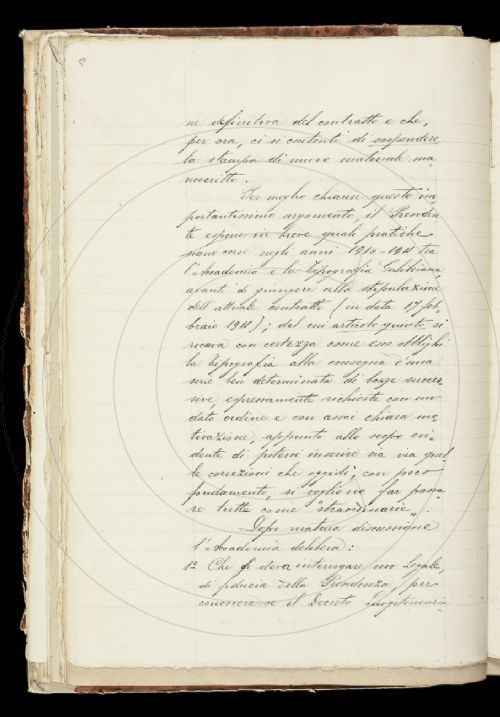 8
ne definitiva del contratto e che,
per ora, ci si contenti di sospendere
la stampa di nuovo materiale ma
noscritto.
Per meglio chiarire questo im
portantissimo argomento, il Presiden
te espone in breve quali pratiche
siano corse negli anni 1910-1911 tra
l'Accademia e la Tipografia Galileiana,
avanti di giungere alla stipulazione
dell'attuale contratto (in data 17 feb
braio 1911); dal cui articolo quinto si
ricava con certezza come essa obblighi
la tipografia alla consegna d'una
serie ben determinata di bozze succes
sive, espressamente richieste con un
dato ordine e con assai chiara mo
tivazione, appunto allo scopo evi
dente di potervi inserire via via quel
le correzioni che oggidì, con poco
fondamento, si vogliono far passa
re tutte come "straordinarie".
Dopo matura discussione
l'Accademia delibera:
1º Che si deva interrogare un Legale,
di fiducia della Presidenza, per
conoscere se il Decreto Luogotenenzia